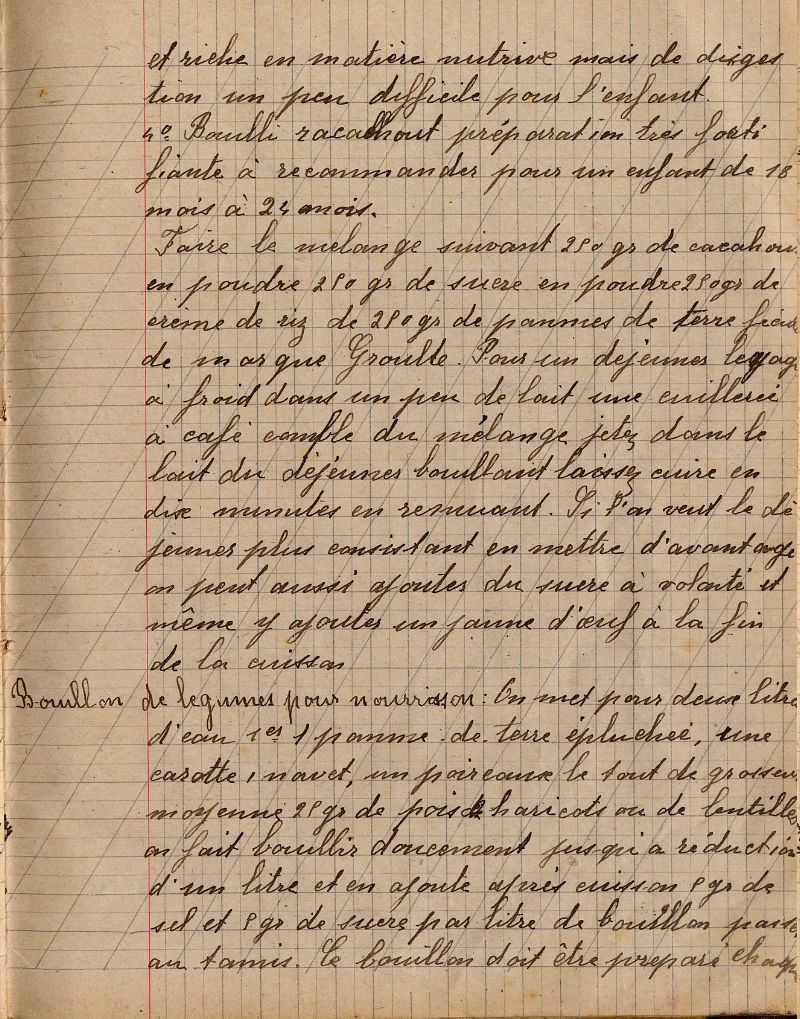 et riche en matière nutrive mais de disges
tion un peu difficile pour l'enfant.
4º Bouilli racalhout préparation très forti
fiante à recommander pour un enfant de 18
mois à 24 mois.
Faire le melange suivant 250 gr de cacahou
en poudre 250 gr de sucre en poudre 250 gr de
crème de riz de 250 gr de pommes de terre fécu
de marque Groulte. Pour un dejeuner
à froid dans un peu de lait une cuillereé
à café comble du mélange jetez dans le
lait du déjéuner bouillant laissez cuire en
dix minutes en remuant. Si l'on veut le dé
jeuner plus consistant en mettre d'avantange
on peut aussi ajouter du sucre à volonté et
même y ajouter un jaune d'œuf à la fin
de la cuisson
Bouillon de legumes pour nourrisson : On met pour deux litre
d'eau 1 pomme de terre épluchée, une
carotte, navet, un poireaux le tout de grosseur
moyenne 25 gr de pois haricots ou de lentilles
on fait bouillir doucement jusqu'a réduction
d'un litre et en ajoute après cuisson 5 gr de
sel et 5 gr de sucre par litre de bouillon passe
au tamis. Ce bouillon doit être preparé chaqu